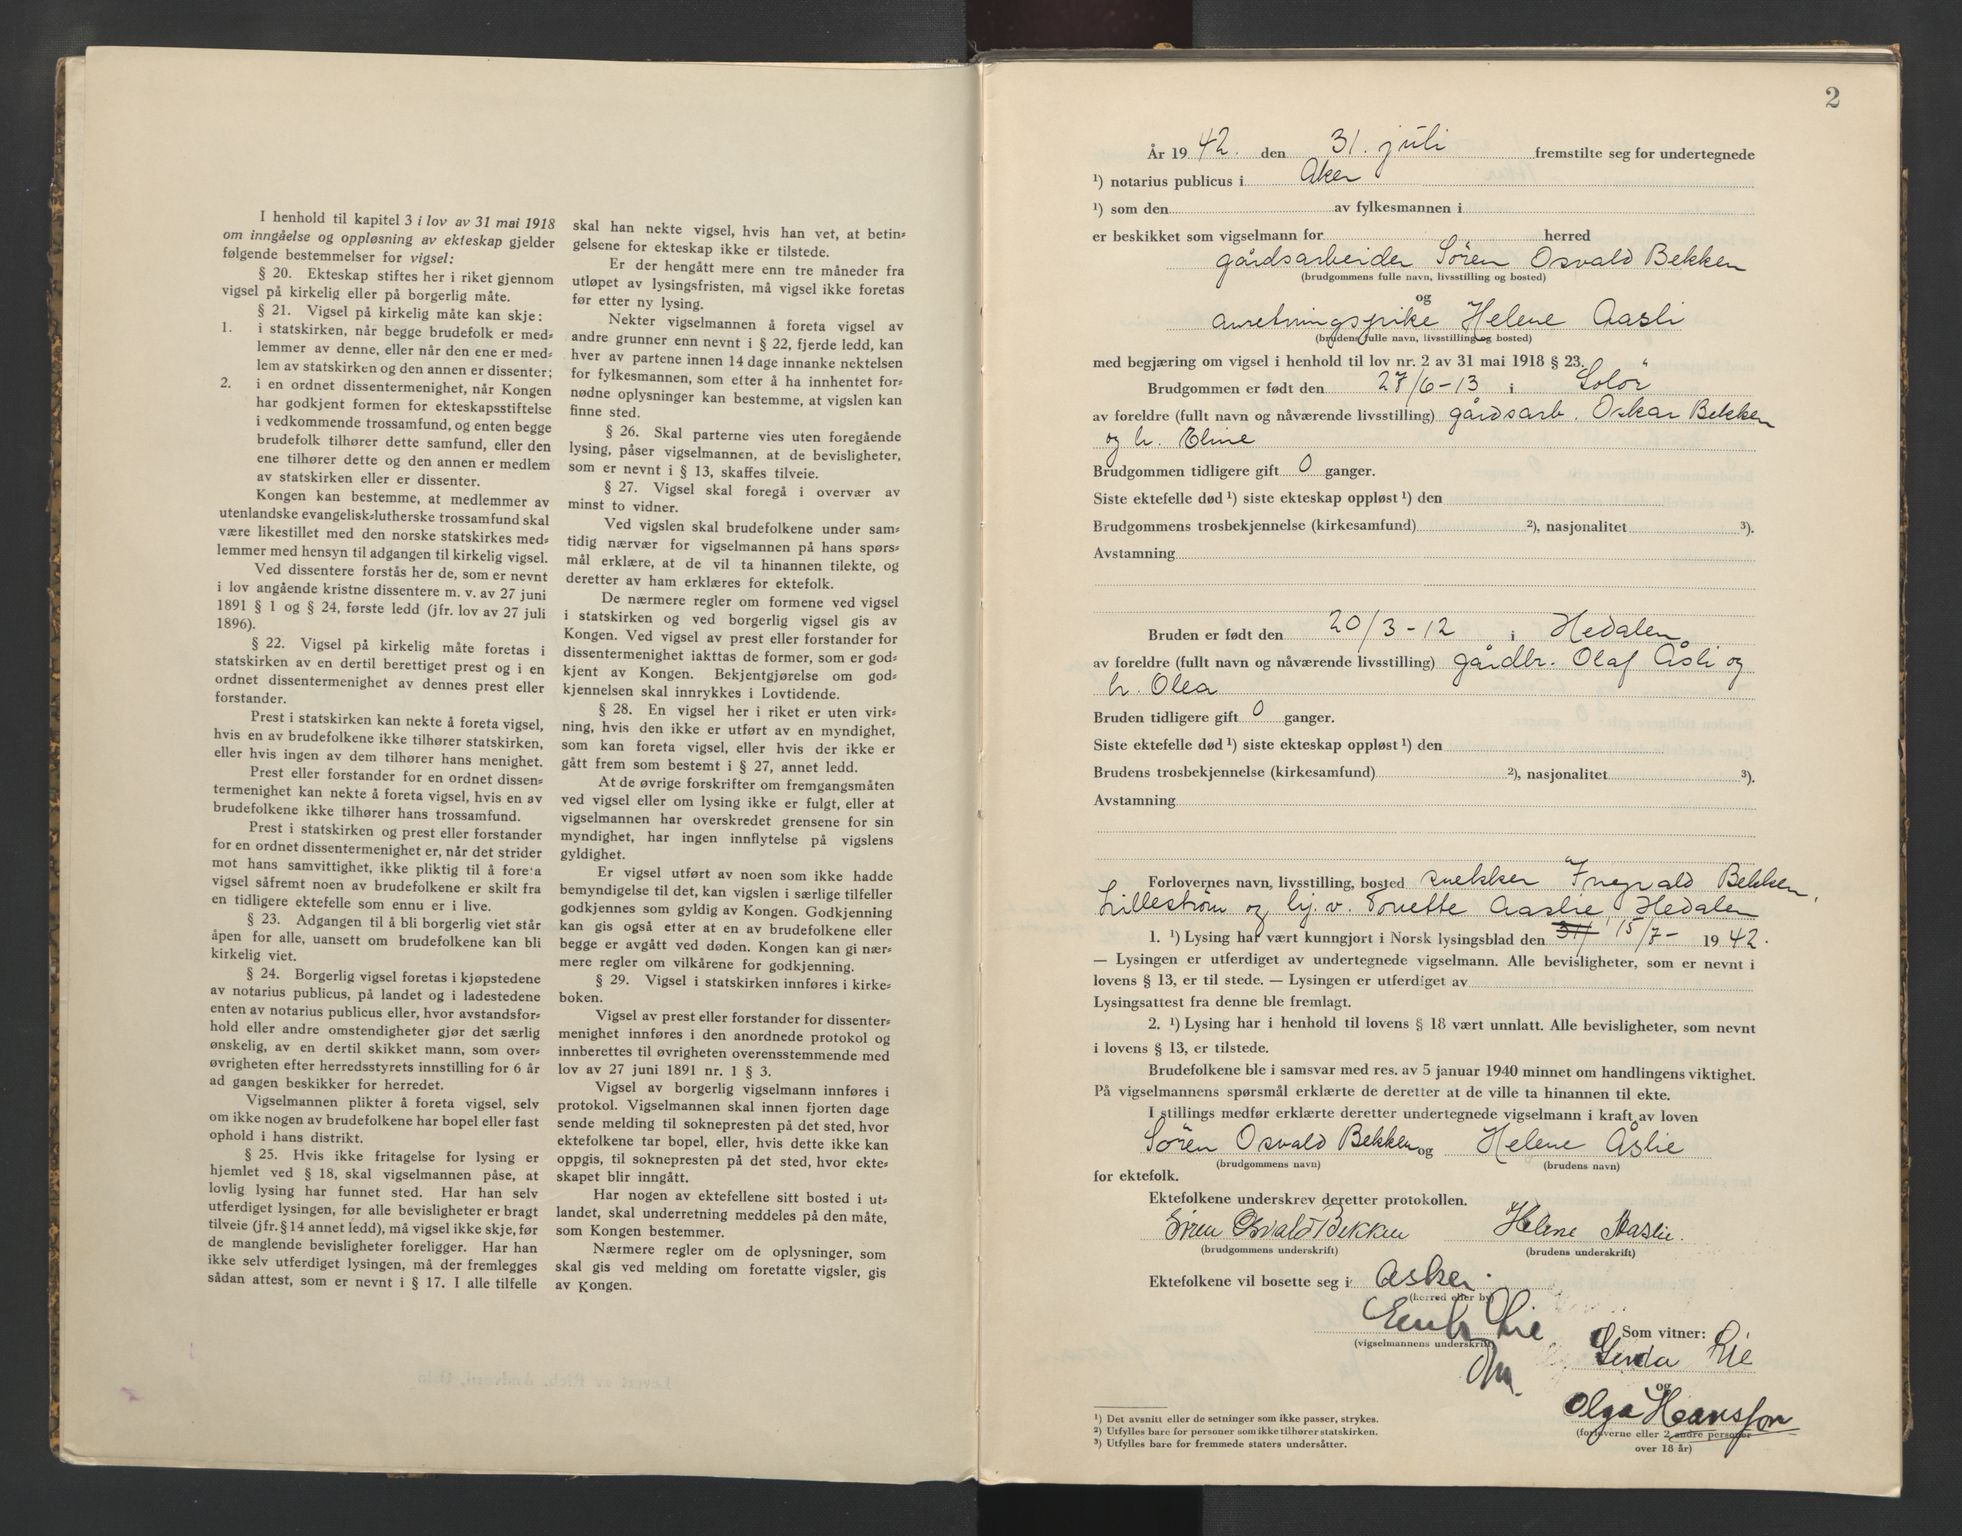 I henhold til kapitel 3 i lov av 31 mai 1918
om inngåelse og oppløsning av ekteskap gjelder
følgende bestemmelser for vigsel:
§ 20. Ekteskap stiftes her i riket gjennom
vigsel på kirkelig eller på borgerlig måte.
§ 21. Vigsel på kirkelig måte kan skje:
1. i statskirken, når begge brudefolk er med-
lemmer av denne, eller når den ene er med-
lem av statskirken og den annen er dissenter;
2. i en ordnet dissentermenighet, når Kongen
har godkjent formen for ekteskapsstiftelse
i vedkommende trossamfund, og enten begge
brudefolk tilhører dette samfund, eller den
ene tilhører dette og den annen er medlem
av statskirken eller er dissenter.
Kongen kan bestemme, at medlemmer av
utenlandske evangelisk-lutherske trossamfund skal
være likestillet med den norske statskirkes med-
lemmer med hensyn til adgangen til kirkelig vigsel.
Ved dissentere forstås her de, som er nevnt
i lov angående kristne dissentere m. v. av 27 juni
1891 § 1 og § 24, første ledd (jfr. lov av 27 juli
1896).
§ 22. Vigsel på kirkelig måte foretas i
statskirken av en dertil berettiget prest og i en
ordnet dissentermenighet av dennes prest eller
forstander.
Prest i statskirken kan nekte å foreta vigsel,
hvis en av brudefolkene ikke tilhører statskirken,
eller hvis ingen av dem tilhører hans menighet.
Prest eller forstander for en ordnet dissen-
termenighet kan nekte å foreta vigsel, hvis en av
brudefolkene ikke tilhører hans trossamfund.
Prest i statskirken og prest eller forstander
for en ordnet dissentermenighet er, når det strider
mot hans samvittighet, ikke pliktig til å foreta
vigsel såfremt noen av brudefolkene er skilt fra
en tidligere ektefelle som ennu er i live.
§ 23. Adgangen til å bli borgerlig viet står
åpen for alle, uansett om brudefolkene kan bli
kirkelig viet.
§ 24. Borgerlig vigsel foretas i kjøpstedene
av notarius publicus, på landet og i ladestedene
enten av notarius publicus eller, hvor avstandsfor-
hold eller andre omstendigheter gjør det særlig
ønskelig, av en dertil skikket mann, som over-
øvrigheten efter herredsstyrets innstilling for 6 år
ad gangen beskikker for herredet.
Vigselmannen plikter å foreta vigsel, selv
om ikke nogen av brudefolkene har bopel eller fast
ophold i hans distrikt.
§ 25. Hvis ikke fritagelse for lysing er
hjemlet ved § 18, skal vigselmannen påse, at
lovlig lysing har funnet sted. Har han selv
utferdiget lysingen, før alle bevisligheter er bragt
tilveie (jfr. § 14 annet ledd), må vigsel ikke skje, før
de manglende bevisligheter foreligger. Har han
ikke selv utferdiget lysingen, må der fremlegges
sådan attest, som er nevnt i § 17. I alle tilfelle
skal han nekte vigsel, hvis han vet, at betin-
gelsene for ekteskap ikke er tilstede.
Er der hengått mere enn tre måneder fra
utløpet av lysingsfristen, må vigsel ikke foretas
før etter ny lysing.
Nekter vigselmannen å foreta vigsel av
andre grunner enn nevnt i § 22, fjerde ledd, kan
hver av partene innen 14 dage innanke nektelsen
for fylkesmannen, som etter å ha innhentet for-
nødne oplysninger kan bestemme, at vigslen kan
finne sted.
§ 26. Skal parterne vies uten foregående
lysing, påser vigselmannen, at de bevisligheter,
som er nevnt i § 13, skaffes tilveie.
§ 27. Vigsel skal foregå i overvær av
minst to vidner.
Ved vigslen skal brudefolkene under sam-
tidig nærvær for vigselmannen på hans spørs-
mål erklære, at de vil ta hinannen tilekte, og
deretter av ham erklæres for ektefolk.
De nærmere regler om formene ved vigsel
i statskirken og ved borgerlig vigsel gis av
Kongen. Ved vigsel av prest eller forstander for
dissentermenighet iakttas de former, som er god-
kjent av Kongen. Bekjentgjørelse om god-
kjennelsen skal innrykkes i Lovtidende.
§ 28. En vigsel her i riket er uten virk-
ning, hvis den ikke er utført av en myndighet,
som kan foreta vigsel, eller hvis der ikke er
gått frem som bestemt i § 27, annet ledd.
At de øvrige forskrifter om fremgangsmåten
ved vigsel eller om lysing ikke er fulgt, eller at
vigselmannen har overskredet grensene for sin
myndighet, har ingen innflytelse på vigslens
gyldighet.
Er vigsel utført av noen som ikke hadde
bemyndigelse til det, kan vigslen i særlige tilfeller
godkjennes som gyldig av Kongen. Godkjenning
kan gis også etter at en av brudefolkene eller
begge er avgått ved døden. Kongen kan gi nær-
mere regler om vilkårene for godkjenning.
§ 29. Vigsel i statskirken innføres i kirke-
boken.
Vigsel av prest eller forstander for dissenter-
menighet innføres i den anordnede protokol og
innberettes til øvrigheten overensstemmende med
lov av 27 juni 1891 nr. 1 § 3.
Vigsel av borgerlig vigselmann innføres i
protokol. Vigselmannen skal innen fjorten dage
sende melding til soknepresten på det sted, hvor
ektefolkene tar bopel, eller, hvis dette ikke kan
oppgis, til soknepresten på det sted, hvor ekte-
skapet blir inngått.
Har nogen av ektefellene sitt bosted i ut-
landet, skal underretning meddeles på den måte,
som Kongen bestemmer.
Nærmere regler om de oplysninger, som
skal gis ved melding om foretatte vigsler, gis
av Kongen.
2
År 1942. den 31. juli fremstilte seg for undertegnede
1) notarius publicus i Aker
1) som den av fylkesmannen i
er beskikket som vigselmann for herred
gårdsarbeider Sören Osvald Bekken
(brudgommens fulle navn, livsstilling og bosted)
og
anretningspike Helene Aasli
(brudens fulle navn, livsstilling og bosted)
med begjæring om vigsel i henhold til lov nr. 2 av 31 mai 1918 § 23.
Brudgommen er født den 27/6-13 i Solör
av foreldre (fullt navn og nåværende livsstilling) gårdsarb. Oskar Bekken
og h. Eline
Brudgommen tidligere gift 0 ganger.
Siste ektefelle død 1) siste ekteskap oppløst 1) den
Brudgommens trosbekjennelse (kirkesamfund) 2), nasjonalitet 3).
Avstamning
Bruden er født den 20/3-12 i Hedalen
av foreldre (fullt navn og nåværende livsstilling) gårdbr. Olaf Åsli og
h. Olea
Bruden tidligere gift 0 ganger.
Siste ektefelle død 1) siste ekteskap oppløst 1) den
Brudens trosbekjennelse (kirkesamfund) 2), nasjonalitet 3).
Avstamning
Forlovernes navn, livsstilling, bosted snekker Ingvald Bekken,
Lilleström og hj.v. Tonette Aaslie Hedalen
1. 1) Lysing har vært kunngjort i Norsk lysingsblad den 31/ 15/7- 1942.
— Lysingen er utferdiget av undertegnede vigselmann. Alle bevisligheter, som er nevnt i
lovens § 13, er til stede. — Lysingen er utferdiget av
Lysingsattest fra denne ble fremlagt.
2. 1) Lysing har i henhold til lovens § 18 vært unnlatt. Alle bevisligheter, som nevnt
i lovens § 13, er tilstede.
Brudefolkene ble i samsvar med res. av 5 januar 1940 minnet om handlingens viktighet.
På vigselmannens spørsmål erklærte de deretter at de ville ta hinannen til ekte.
I stillings medfør erklærte deretter undertegnede vigselmann i kraft av loven
Sören Osvald Bekken og Helene Åslie
(brudgommens navn) (brudens navn)
for ektefolk.
Ektefolkene underskrev deretter protokollen.
Sören Osvald Bekken Helene Aaslie.
(brudgommens underskrift) (brudens underskrift)
Ektefolkene vil bosette seg i Asker.
(herred eller by)
Lie Som vitner:
(vigselmannens underskrift) Gerda Lie
og
Olga Hansson
(forloverne eller 2 andre personer
over 18 år)
1) Det avsnitt eller de setninger som ikke passer, strykes.
2) Utfylles bare for personer som ikke tilhører statskirken.
3) Utfylles bare for fremmede staters undersåtter.